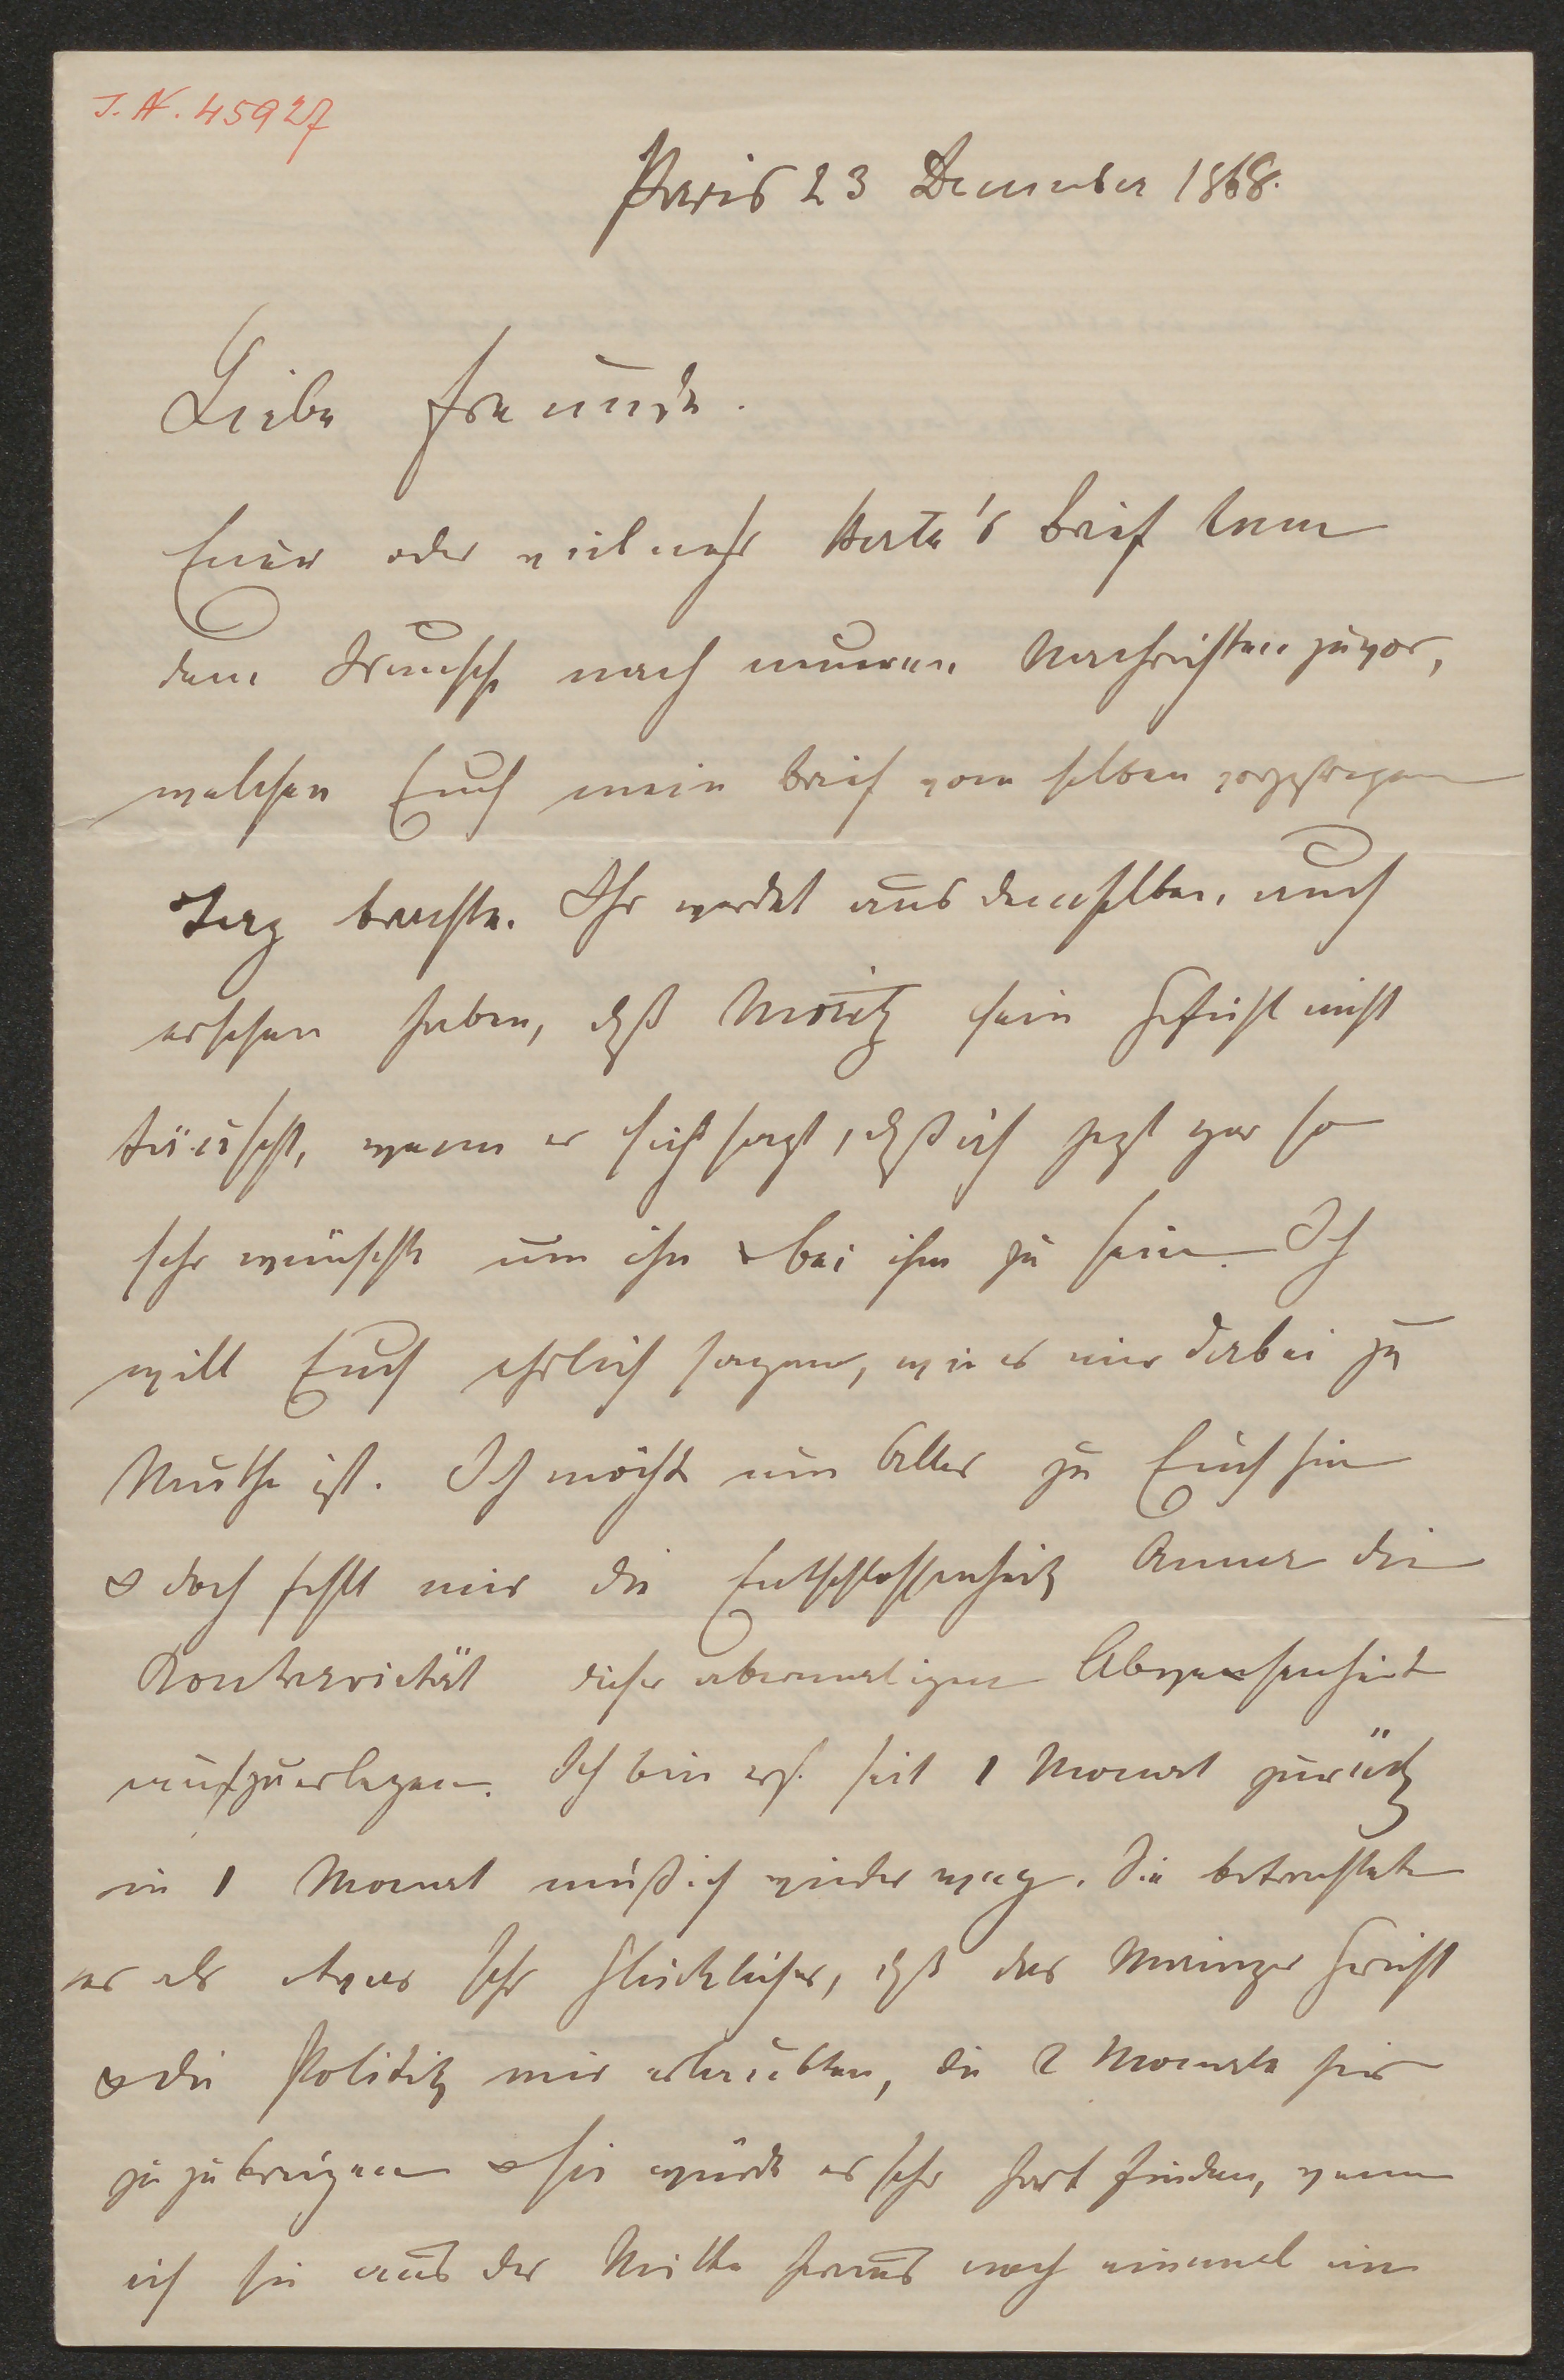 I. N. 45927
Paris 23 December 1868.
Liebe Freunde.
Euer oder vielmehr Kate's Brief kam
dem Wunsche nach neueren Nachrichten zuvor,
welchen Euch mein Brief vom selben
Tag brachte. Ihr werdet aus demselben auch
ersehen haben, daß Moritz sein Gefühl nicht
täuscht, wenn er sich sagt, daß ich jezt gar so
sehr wünschte um ihn & bei ihm zu sein. Ich
will Euch ehrlich sagen, wie es mir dabei zu
Muthe ist. Ich möchte um Alles zu Euch hin
& doch fehlt mir die Entschlossenheit Anna die
Contrarietät dieser abermaligen Abwesenheit
aufzuerlegen. Ich bin erst seit 1 Monat zurück
in 1 Monat muß ich wieder weg. Sie betrachtete
es als etwas sehr Glückliches, daß das Mainzer Geschäft
& die Politik mir erlaubten, die 2 Monate hier
zuzubringen & sie würde es sehr hart finden, wenn
ich sie aus der Mitte heraus noch einmal im